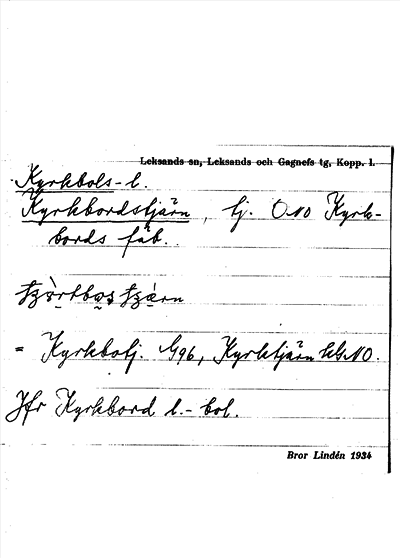 Leksands sn, Leksands och Gagnefs tg, Kopp. l.
Kyrkbols- l.
Kyrkbordstjärn, tj. O NO Kyrk-
bords fäb.
= Kyrkbotj. G96, Kyrktjärn NO.
Jfr Kyrkbord l. - bol.
Bror Lindén 1934